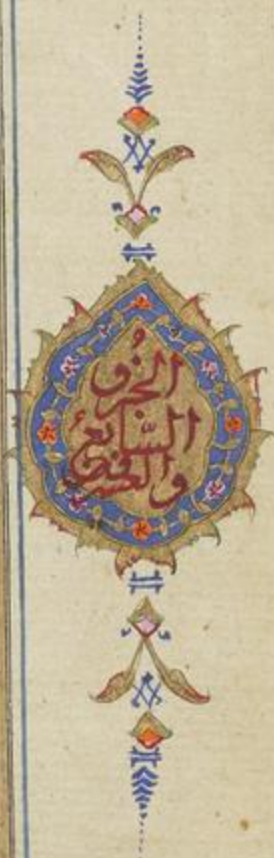 الجُزو
السّابع
والعشرون